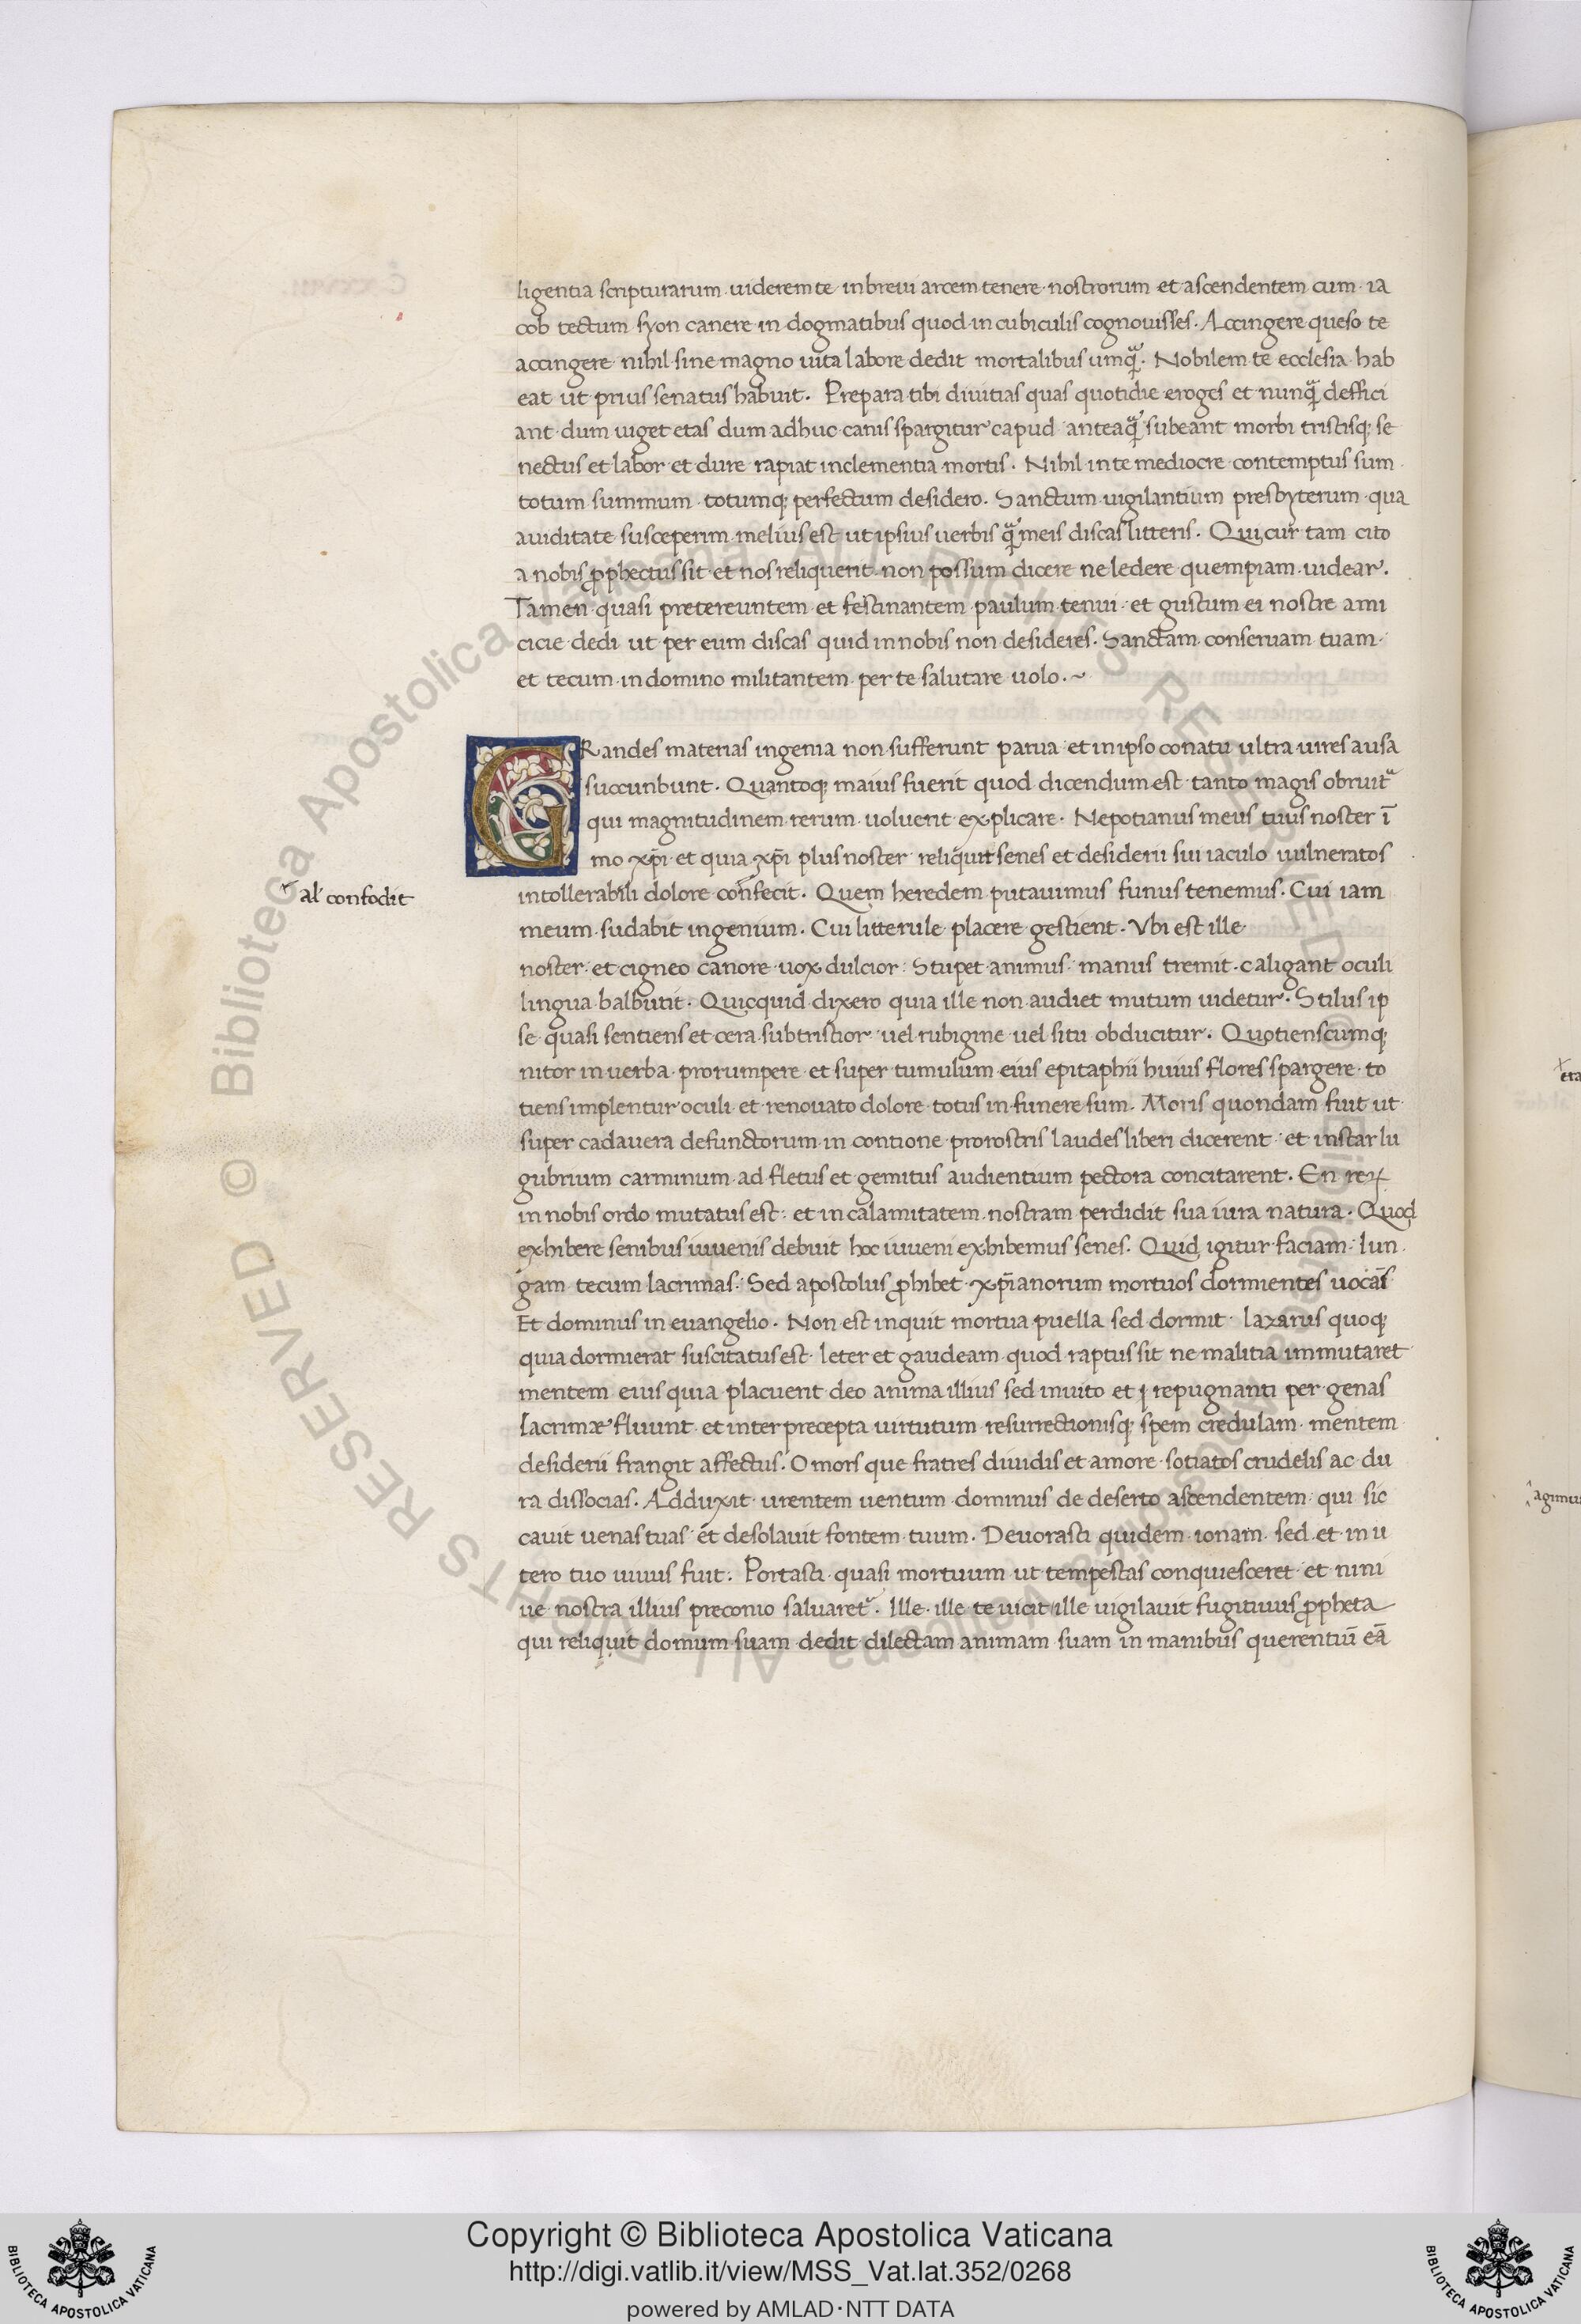 ligentia scripturarum · uiderem te · in breui arcem tenere · nostrorum et ascendentem cum · ia
cob tectum syon canere in dogmatibus quod · in cubiculis cognouisses. Accingere queso te
accingere · nihil sine magno uita labore dedit mortalibus umq̃. Nobilem te ecclesia · hab
eat ut prius senatus habuit. Prepara tibi diuitias quas quotidie eroges et nunq̃ deffici
ant · dum uiget etas dum adhuc canis spargitur capud anteaq̃ subeant morbi tristisq; se
nectus et labor · et dure rapiat inclementia mortis. Nihil in te mediocre contemptus sum ·
totum summum · totumq; perfectum desidero. Sanctum uigilantium presbyterum · qua
auiditate susceperim melius est ut ipsius uerbis q̃ meis discas litteris. Qui cur tam cito
a nobis ꝓphectus sit · et nos reliquerit · non possum dicere ne ledere quempiam uidear.
Tamen quasi pretereuntem et festinantem paulum tenui · et gustum ei nostre ami
cicie dedi ut per eum discas quid in nobis non desideres. Sanctam conseruam tuam ·
et tecum · in domino militantem per te salutare uolo. ~
GRandes materias ingenia non sufferunt parua · et in ipso conatu ultra uires ausa
succunbunt. Quantoq; maius fuerit quod dicendum est tanto magis obruit᷑
qui magnitudinem rerum uoluerit explicare. Nepotianus meus tuus noster ī
mo xp̄i et quia xp̄i plus noster reliquit senes et desiderii sui iaculo uulneratos
al' confodit
intollerabili dolore confecit. Quem heredem putauimus funus tenemus. Cui iam
meum sudabit ingenium. Cui litterule placere gestient. Vbi est ille
noster · et cigneo canore uox dulcior: Stupet animus · manus tremit · caligant oculi
lingua balbutit. Quicquid dixero quia ille non audiet mutum uidetur. Stilus ip
se quasi sentiens et cera subtristior uel rubigine uel situ obducitur. Quotienscumq;
nitor in uerba prorumpere et super tumulum eius epitaphii huius flores spargere · to
tiens implentur oculi · et renouato dolore totus in funere sum. Moris quondam fuit ut
super cadauera defunctorum in contione prorostris laudes liberi dicerent · et instar lu
gubrium carminum ad fletus et gemitus audientium pectora concitarent. En reꝝ
in nobis ordo mutatus est: et in calamitatem nostram perdidit sua iura natura. Quod
exhibere senibus iuuenis debuit hoc iuueni exhibemus senes. Quid igitur faciam: Iun
gam tecum lacrimas: Sed apostolus ꝓhibet xp̄ianorum mortuos dormientes uocās
Et dominus in euangelio. Non est inquit mortua puella sed dormit · lazarus quoq;
quia dormierat suscitatus est · leter et gaudeam quod raptus sit ne malitia immutaret
mentem eius quia placuerit deo anima illius sed inuito et repugnanti per genas
lacrimæ fluunt · et inter precepta uirtutum resurrectionisq; spem credulam · mentem
desiderii frangit affectus. O mors que fratres diuidis et amore sotiatos crudelis ac du
ra dissocias. Adduxit · urentem uentum dominus de deserto ascendentem qui sic
cauit uenas tuas et desolauit fontem tuum. Deuorasti quidem ionam · sed et in u
tero tuo uiuus fuit. Portasti quasi mortuum ut tempestas conquiesceret et nini
ue nostra illius preconio saluaret᷑. Ille · ille te uicit ille uigilauit fugitiuus ꝓpheta
qui reliquit domum suam · dedit dilectam animam suam in manibus querentiū eā
agimus
© Biblioteca Apostolica Vaticana ALL RIGHTS RESERVED © Biblioteca Apostolica Vaticana ALL RIGHTS RESERVED
Copyright © Biblioteca Apostolica Vaticana
http://digi.vatlib.it/view/MSS_Vat.lat.352/0268
powered by AMLAD·NTT DATA
BIBLIOTECA APOSTOLICA VATICANA
BIBLIOTECA APOSTOLICA VATICANA